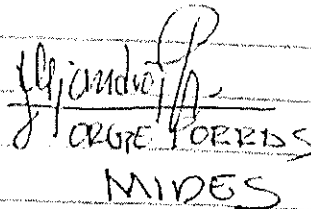 Alejandro P.
JORGE PORRAS
MIDES